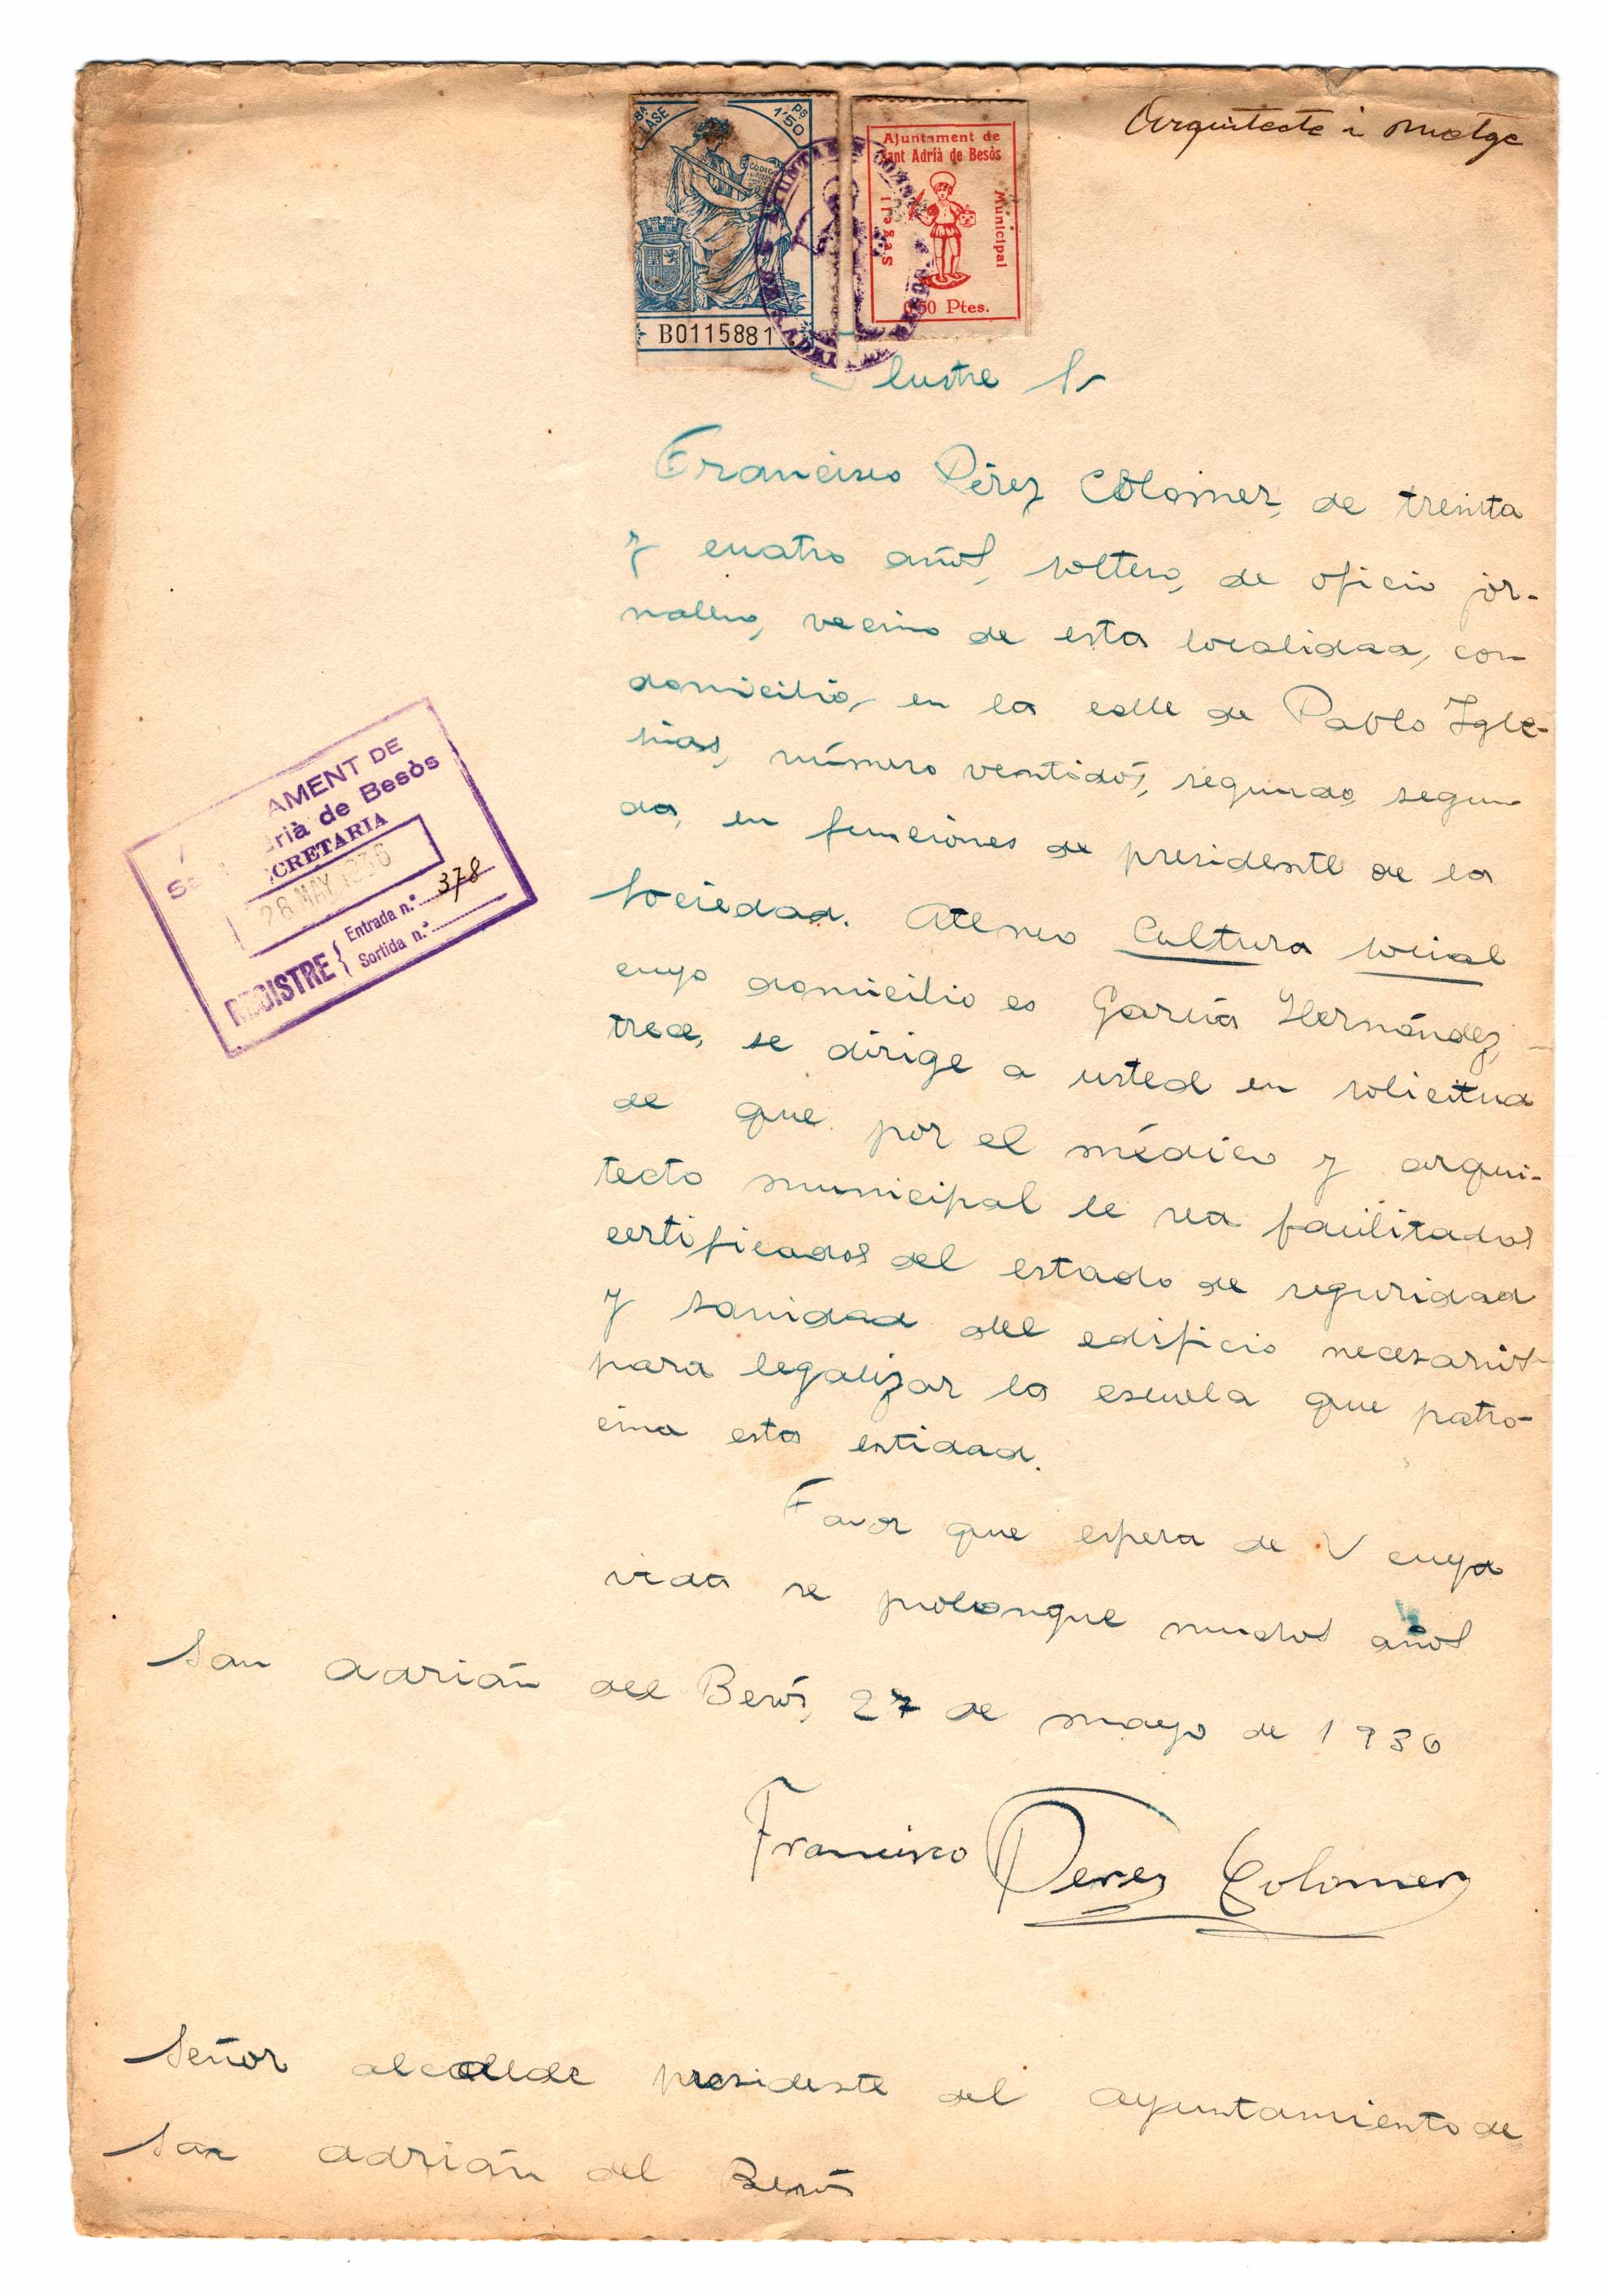 Arquitecte i metge
8ª CLASE
Ps 1'50
CÓDIGO
B0115881
Ajuntament de
Sant Adrià de Besòs
Segell
Municipal
0'50 Ptes.
Ilustre Sr
Francisco Pérez Colomer, de treinta
y cuatro años, soltero, de oficio jor-
nalero, vecino de esta localidad, con
domicilio, en la calle de Pablo Igle-
sias, número ventidós, segundo, segun
da, en funciones de presidente de la
Sociedad. Ateneo Cultura social
cuyo domicilio es García Hernández,
trece, se dirige a usted en solicitud
de que por el médico y arqui-
tecto municipal le sea facilitados
certificados del estado de seguridad
y sanidad del edificio necesarios
para legalizar la escuela que patro-
cina esta entidad.
Favor que espera de V cuya
vida se prolongue muchos años
San Adrián del Besós, 27 de mayo de 1936
Francisco Perez Colomer
Señor alcalde presidente del ayuntamiento de
San Adrián del Besós
AMENT DE
rià de Besòs
CRETARIA
28 MAY 1936
REGISTRE { Entrada n.º 378
Sortida n.º